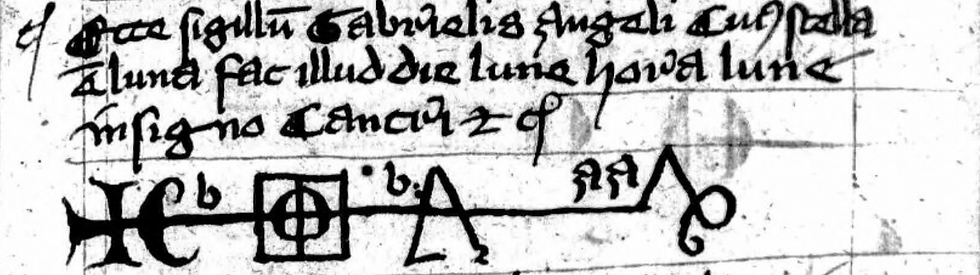 Ecce sigillū Gabrielis Angeli Cuiꝰ stella
ē luna fac illud die lune hora lune
in signo Cancri ⁊ cͥ
b b. aa